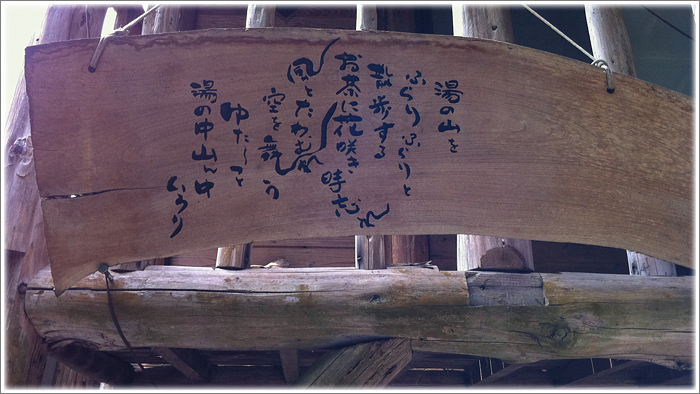 湯の山を
ふらりふらりと
散歩する
お茶に花咲き時忘れ
風とたわむれ
空を舞う
ゆた〜と
湯の中山ん中
いろり